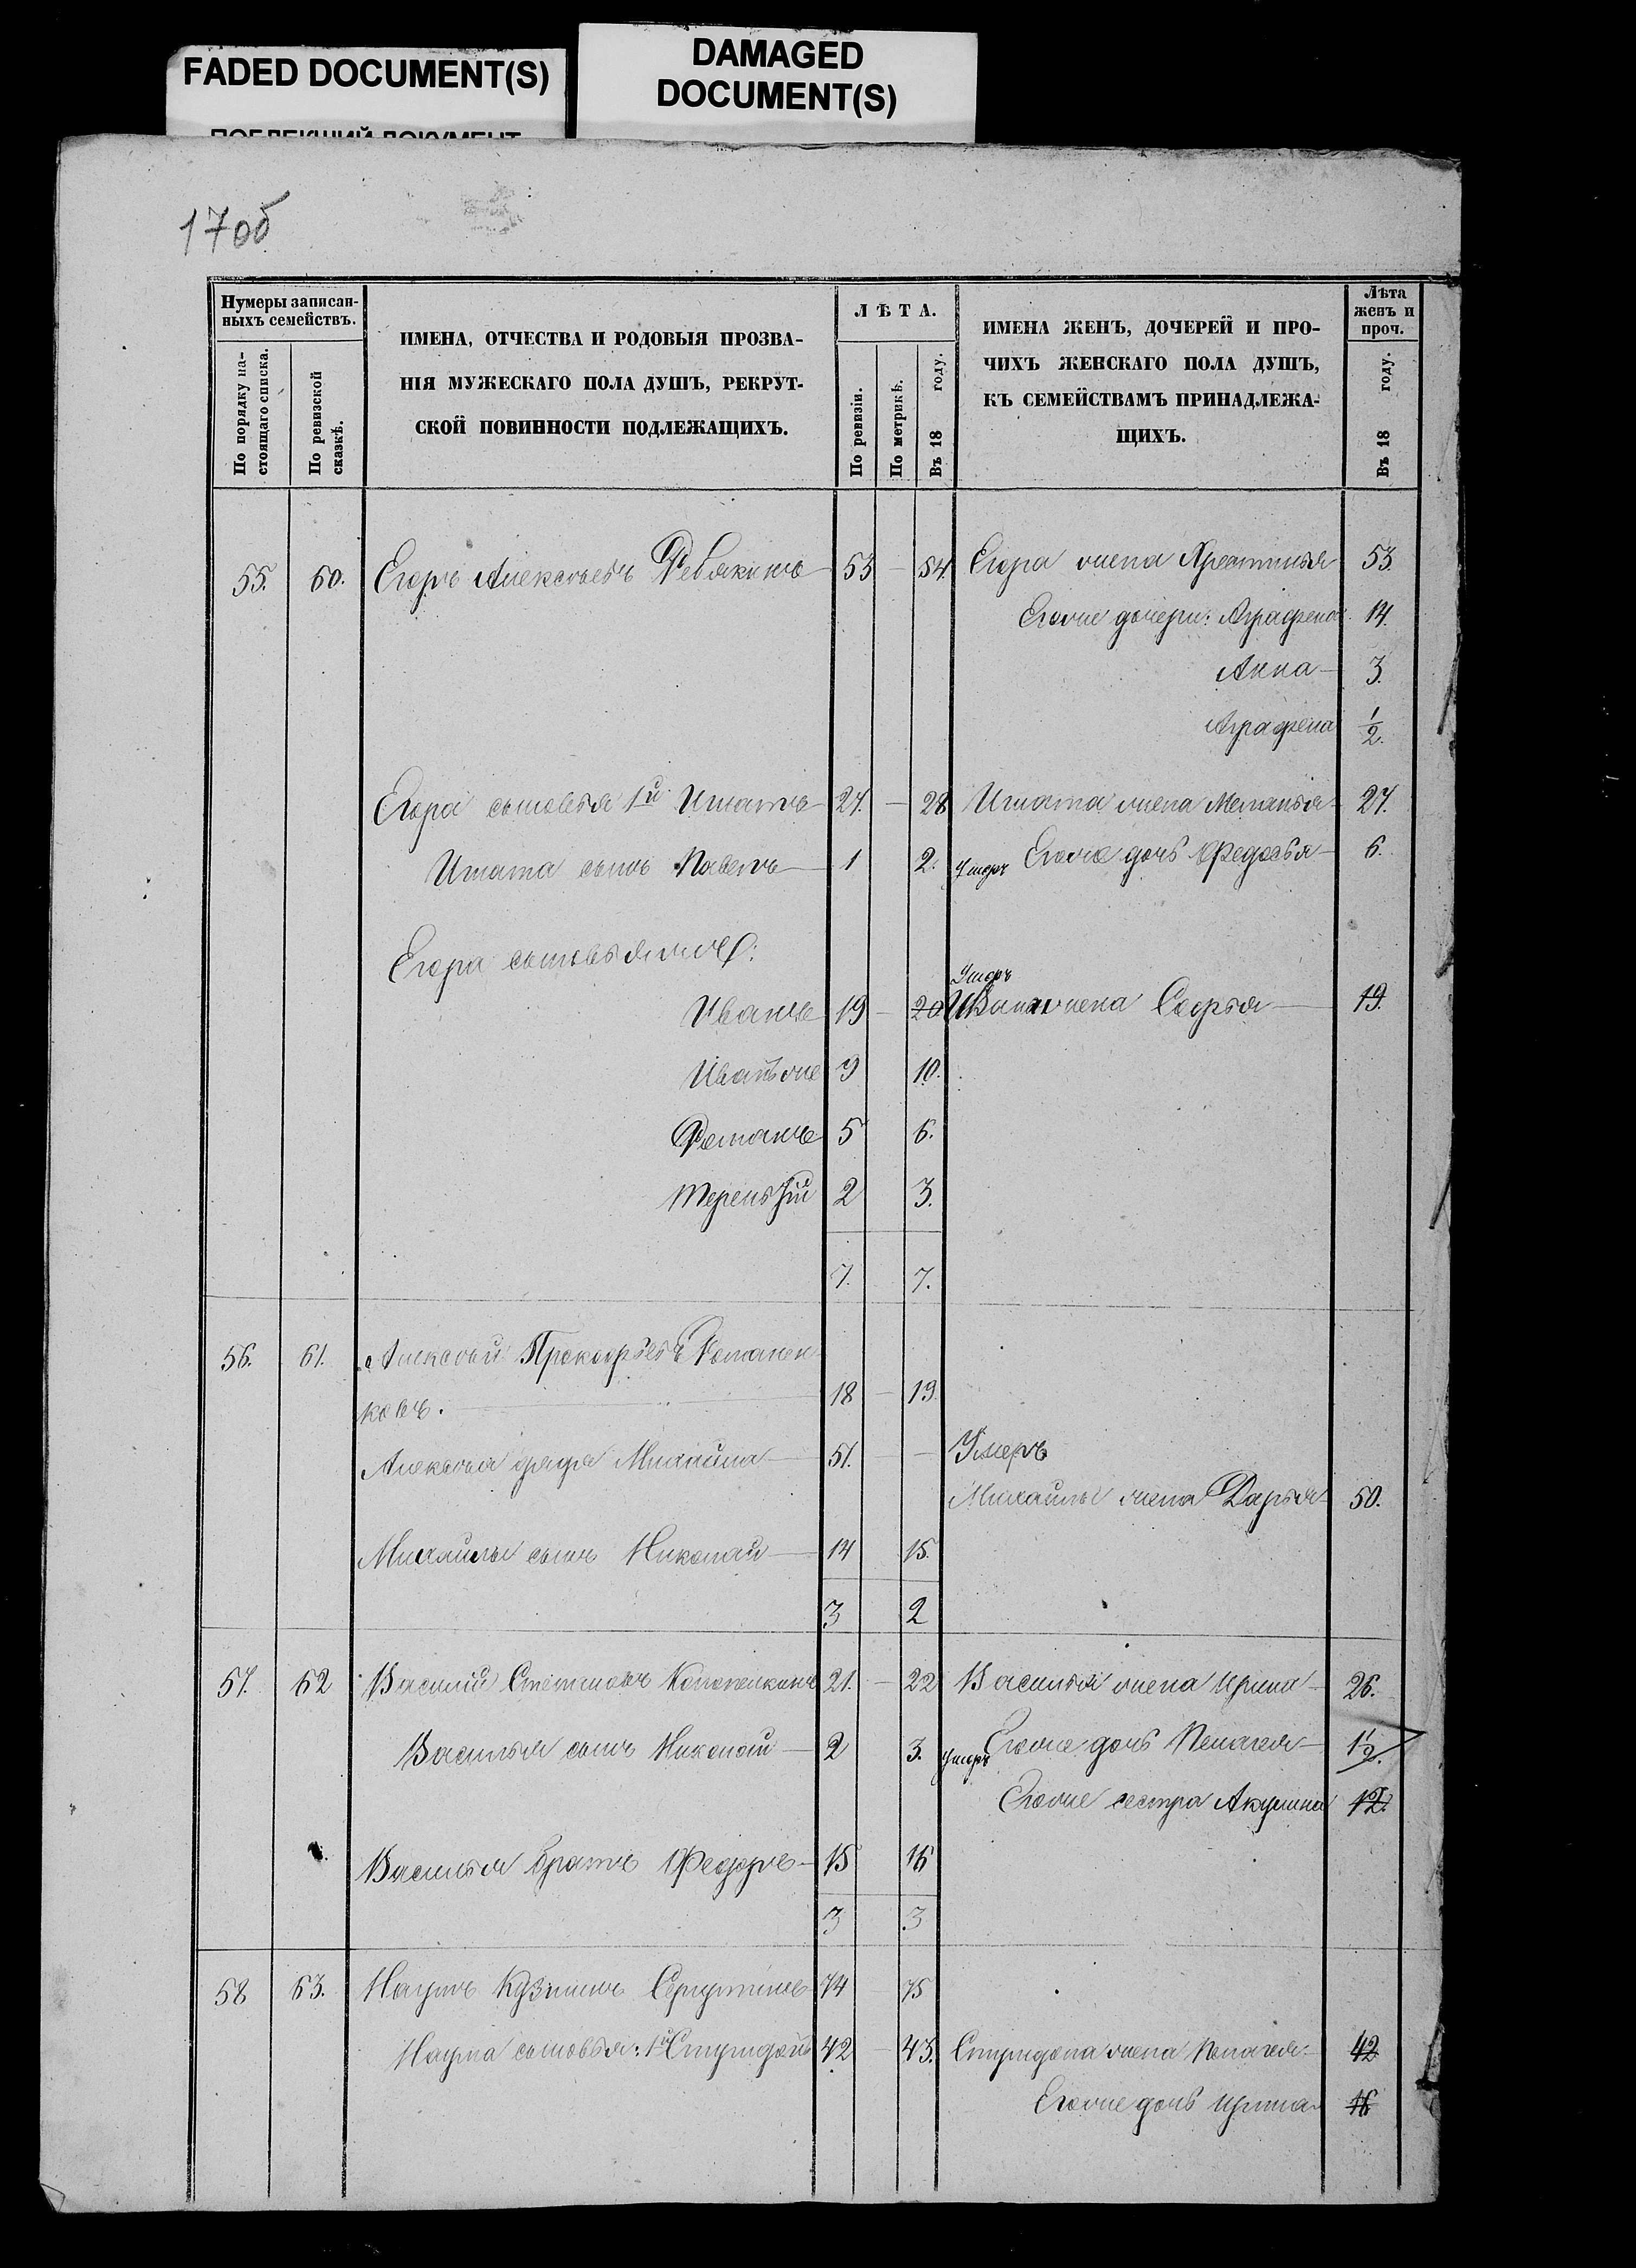 FADED DOCUMENT(S)
DAMAGED
DOCUMENT(S)
ПОБЛЕКШИЙ ДОКУМЕНТ
17об
Нумеры записан-
ныхъ семействъ.
По порядку на-
стоящаго списка.
По ревизской
сказкѣ.
ИМЕНА, ОТЧЕСТВА И РОДОВЫЯ ПРОЗВА-
НІЯ МУЖЕСКАГО ПОЛА ДУШЪ, РЕКРУТ-
СКОЙ ПОВИННОСТИ ПОДЛЕЖАЩИХЪ.
ЛѢТА.
По ревизіи.
По метрикѣ.
Въ 18 году.
ИМЕНА ЖЕНЪ, ДОЧЕРЕЙ И ПРО-
ЧИХЪ ЖЕНСКАГО ПОЛА ДУШЪ,
КЪ СЕМЕЙСТВАМЪ ПРИНАДЛЕЖА-
ЩИХЪ.
Лѣта
женъ и
проч.
Въ 18 году.
55. 60. Егоръ Алексѣевъ Ревякинъ 53 — 54. Егора жена Хрестинья 53.
Егоже дочери: Аграфена 14.
Анна — 3.
Аграфена 1/2.
Егора сыновья 1й Игнатъ 27. — 28 Игната жена Меланья 27.
Игната сынъ Павелъ — 1 2. Умеръ Егоже дочь Федосья — 6.
Егора сыновья же:
Умеръ
Иванъ 19 — 20 Ивана жена Софья — 19.
Иванъ же 9 10.
Романъ 5 6.
Терентій 2 3.
7. 7.
56. 61. Алексѣй Прокофьевъ Романен
ковъ. — 18 — 19
Алексѣя дядя Михайла — 51. — Умеръ
Михайлы жена Дарья 50.
Михайлы сынъ Николай — 14 15.
3 2
57. 62 Василій Степановъ 21. — 22 Василья жена Ирина — 26.
Василья сынъ Николай — 2 3. Умеръ Егоже дочь Пелагея — 1 1/2.
Егоже сестра Акулина 12.
Василья братъ Федоръ — 15 16
3 3
58 63. Наумъ Кузминъ 74 75
Наума сыновья: 1й Спиридонъ 42 — 43. Спиридона жена Пелагея — 42
Егоже дочь Ирина 16